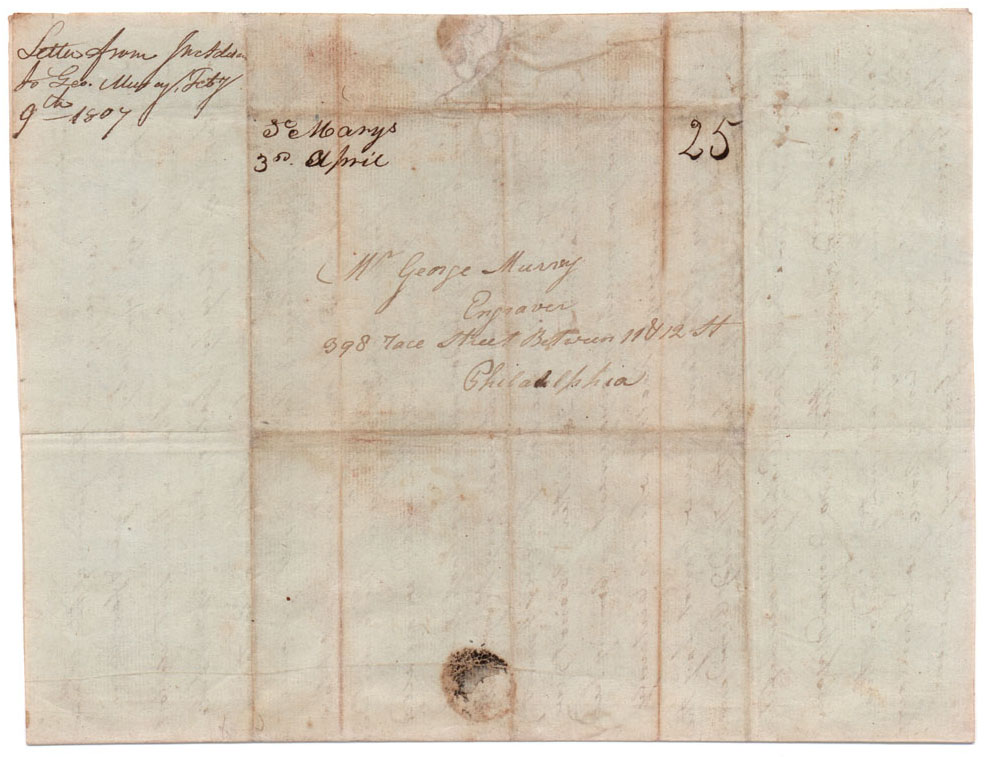 Letter from
to Geo. Murray, Feby
9th 1807
St Marys
3rd. April
25
Mr George Murray
Engraver
398 race Street Between 11 & 12 St
Philadelphia